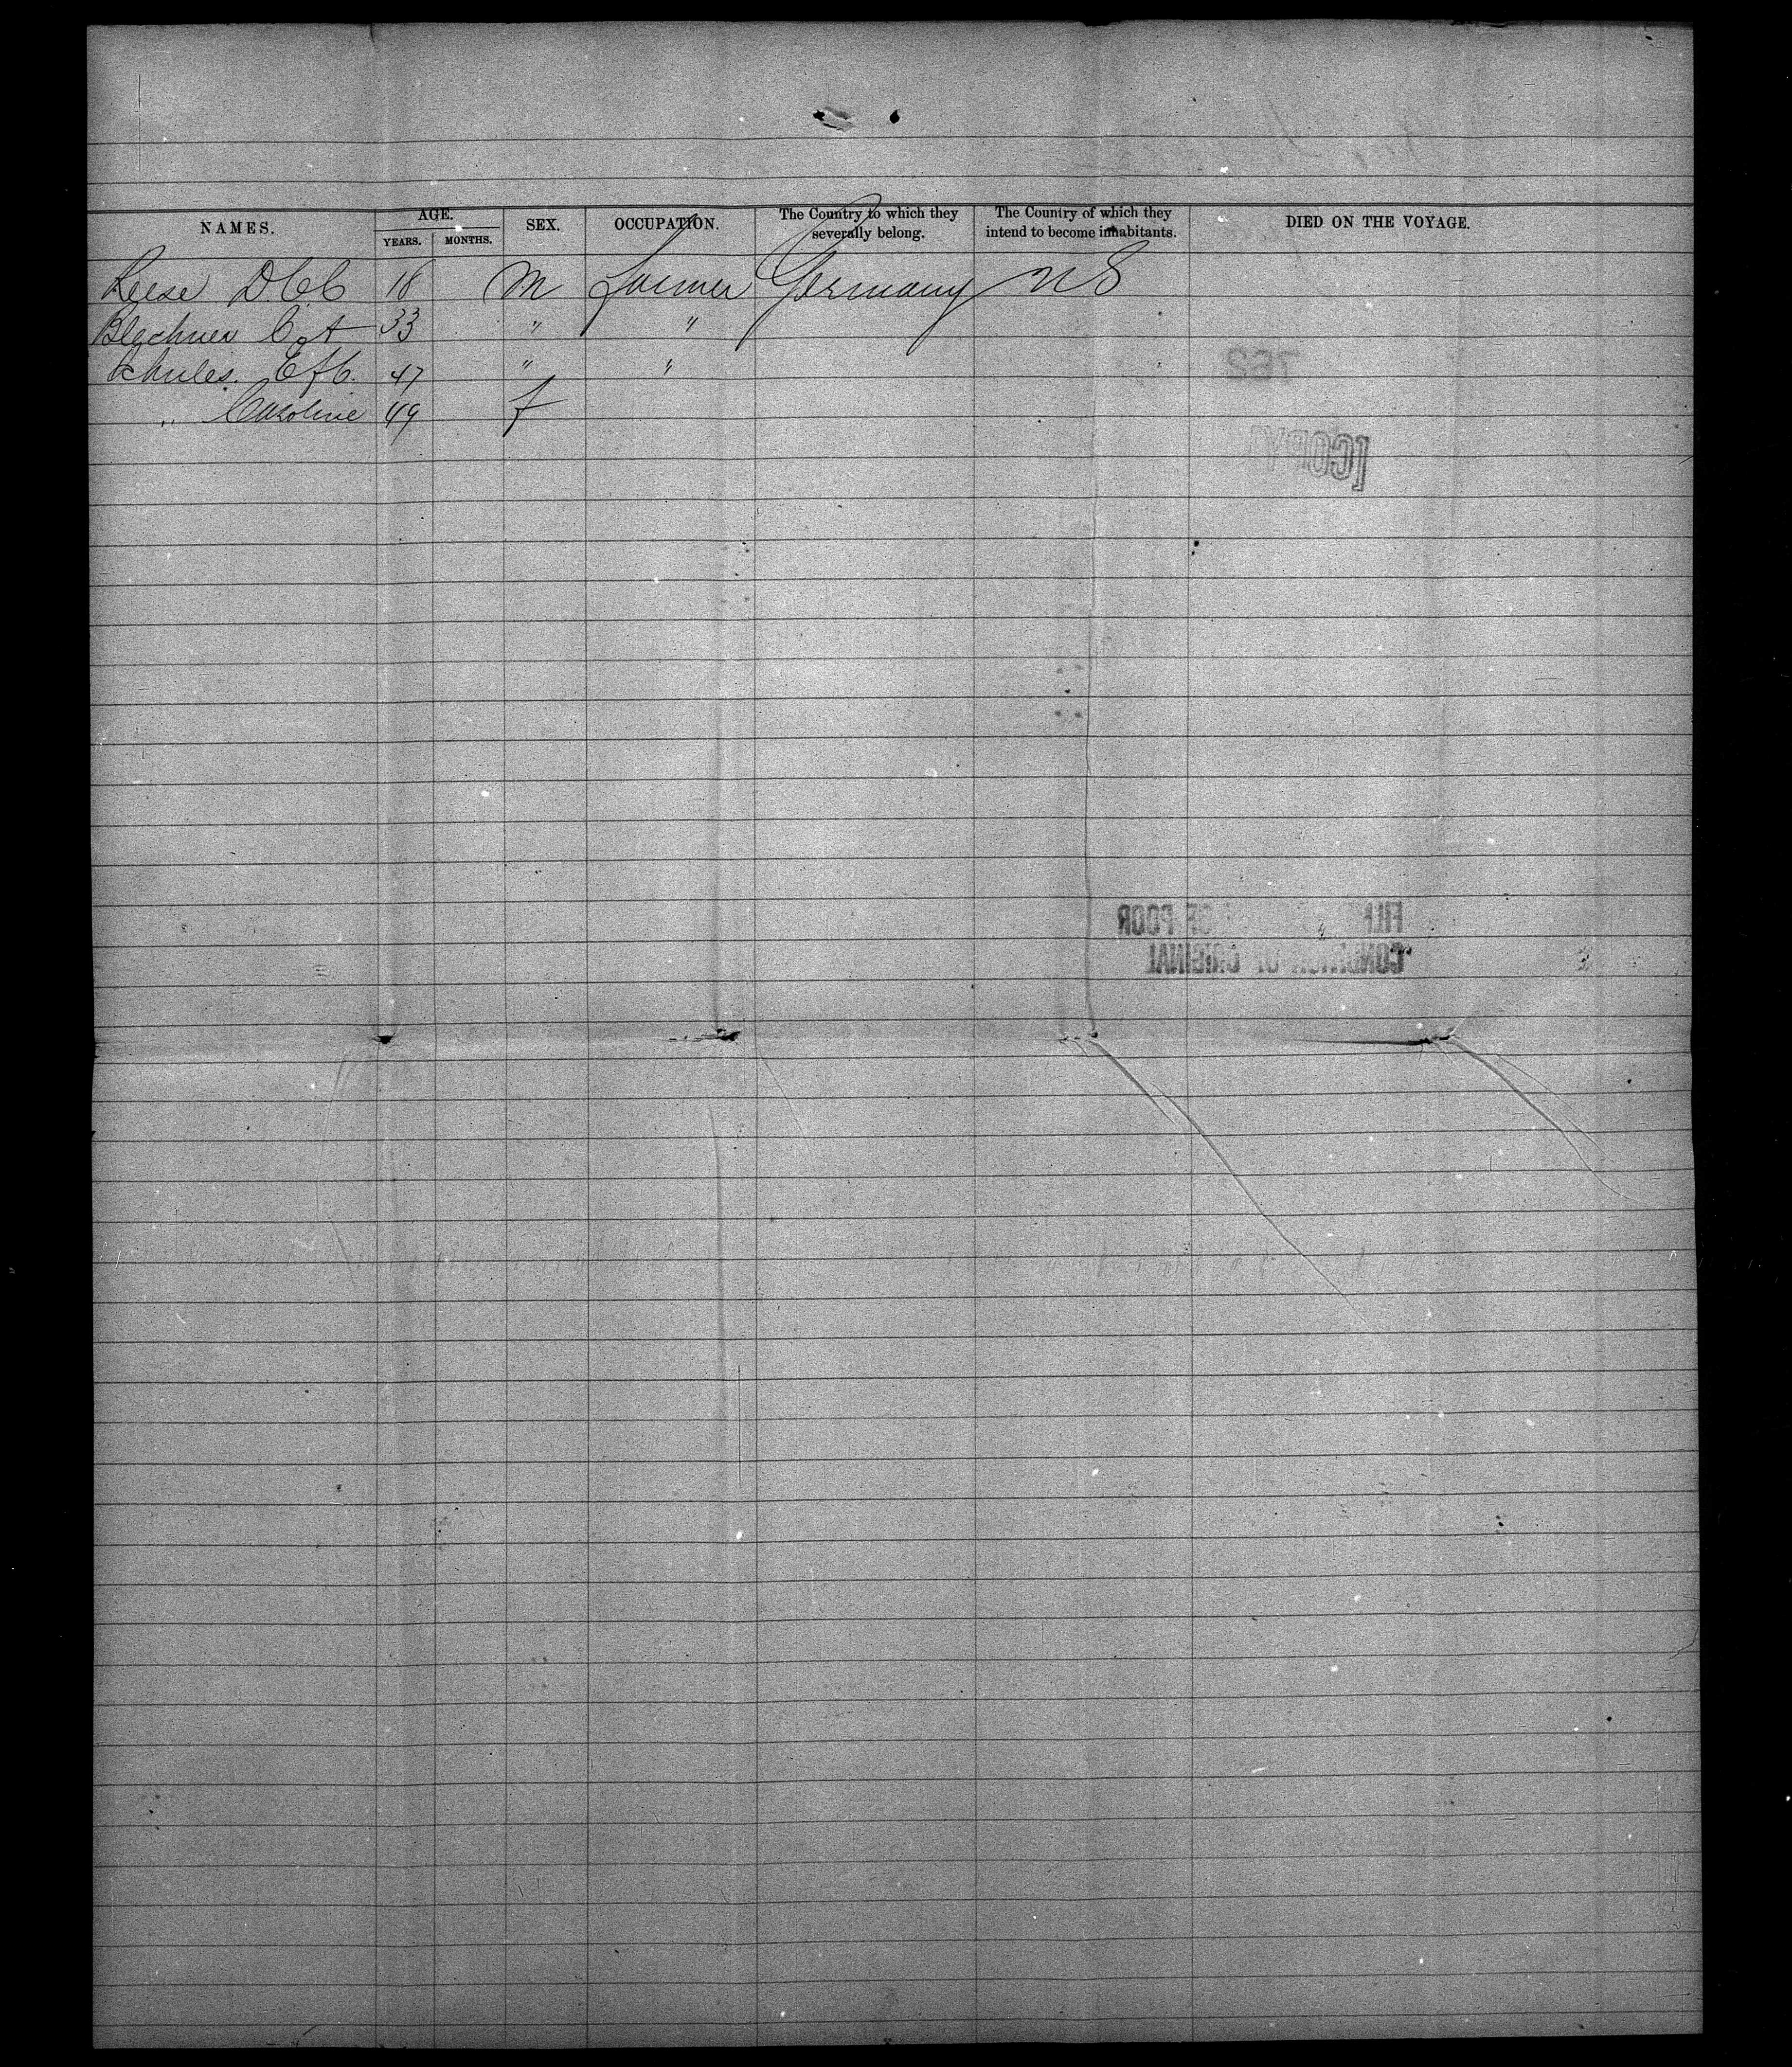 NAMES. AGE. SEX. OCCUPATION. The Country to which they severally belong. The Country of which they intend to become inhabitants. DIED ON THE VOYAGE.
YEARS. MONTHS.
Reese D.C.C 18 M Farmer Germany US
Blechner C. A 33 " "
Schules. E f C. 47 " "
" Caroline 49 f
762
[COPY]
FILE OF POOR
CONDITION OF ORIGINAL